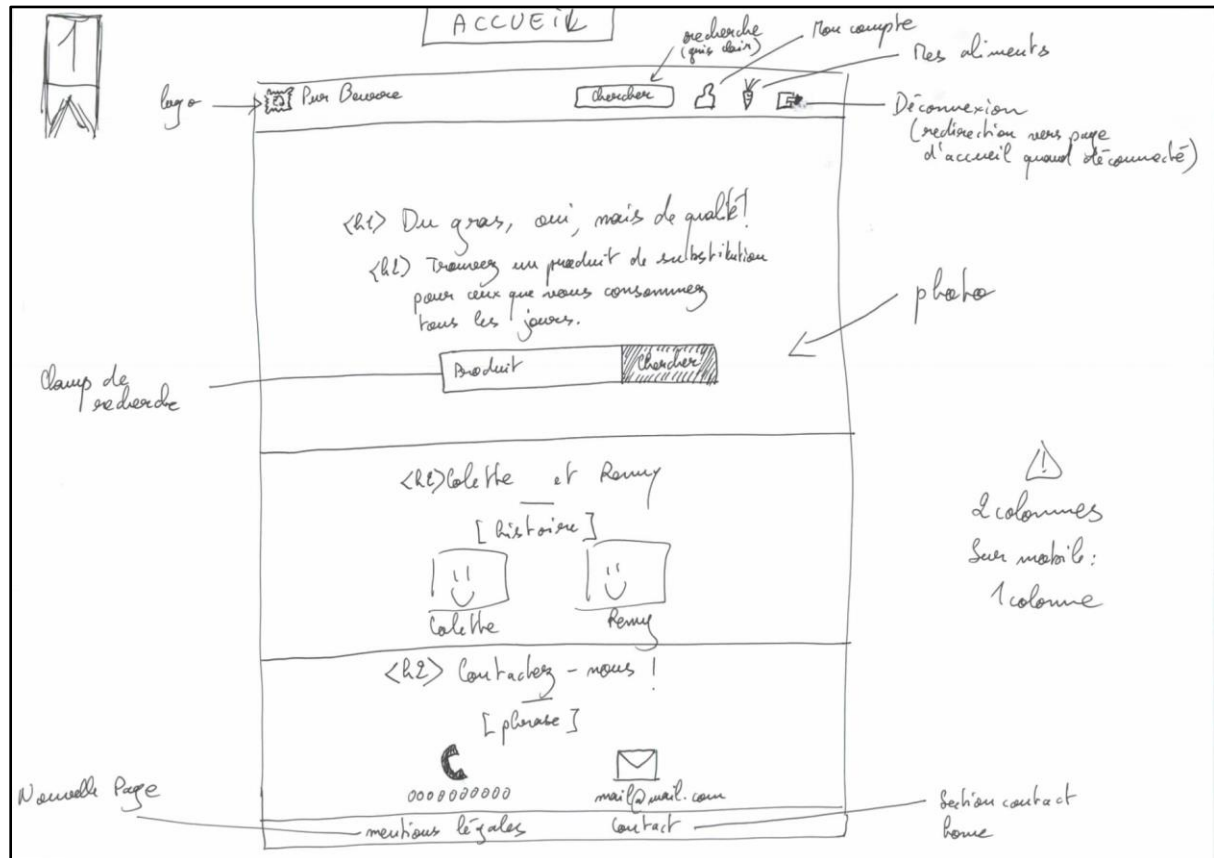 1
ACCUEIL
recherche
(gris clair)
Mon compte
Mes aliments
logo
Pur Beurre
Chercher
Déconnexion
(redirection vers page
d'accueil quand déconnecté)
<h1> Du gras, oui, mais de qualité!
<h2> Trouvez un produit de substitution
pour ceux que vous consommez
tous les jours.
photo
Champ de
recherche
Produit
Chercher
<h2> Colette et Remy
[histoire]
Colette
Remy
!
2 colonnes
Sur mobile :
1 colonne
<h2> Contactez-nous !
[phrase]
0000000000
mail@mail.com
Nouvelle Page
mentions légales
Contact
Section contact
home